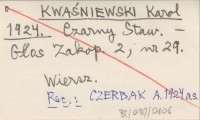 KWAŚNIEWSKI Karol
1924. Czarny Staw. –
Głos Zakop. 2, nr 29.
Wiersz.
Rec.: CZERBAK A. 1924